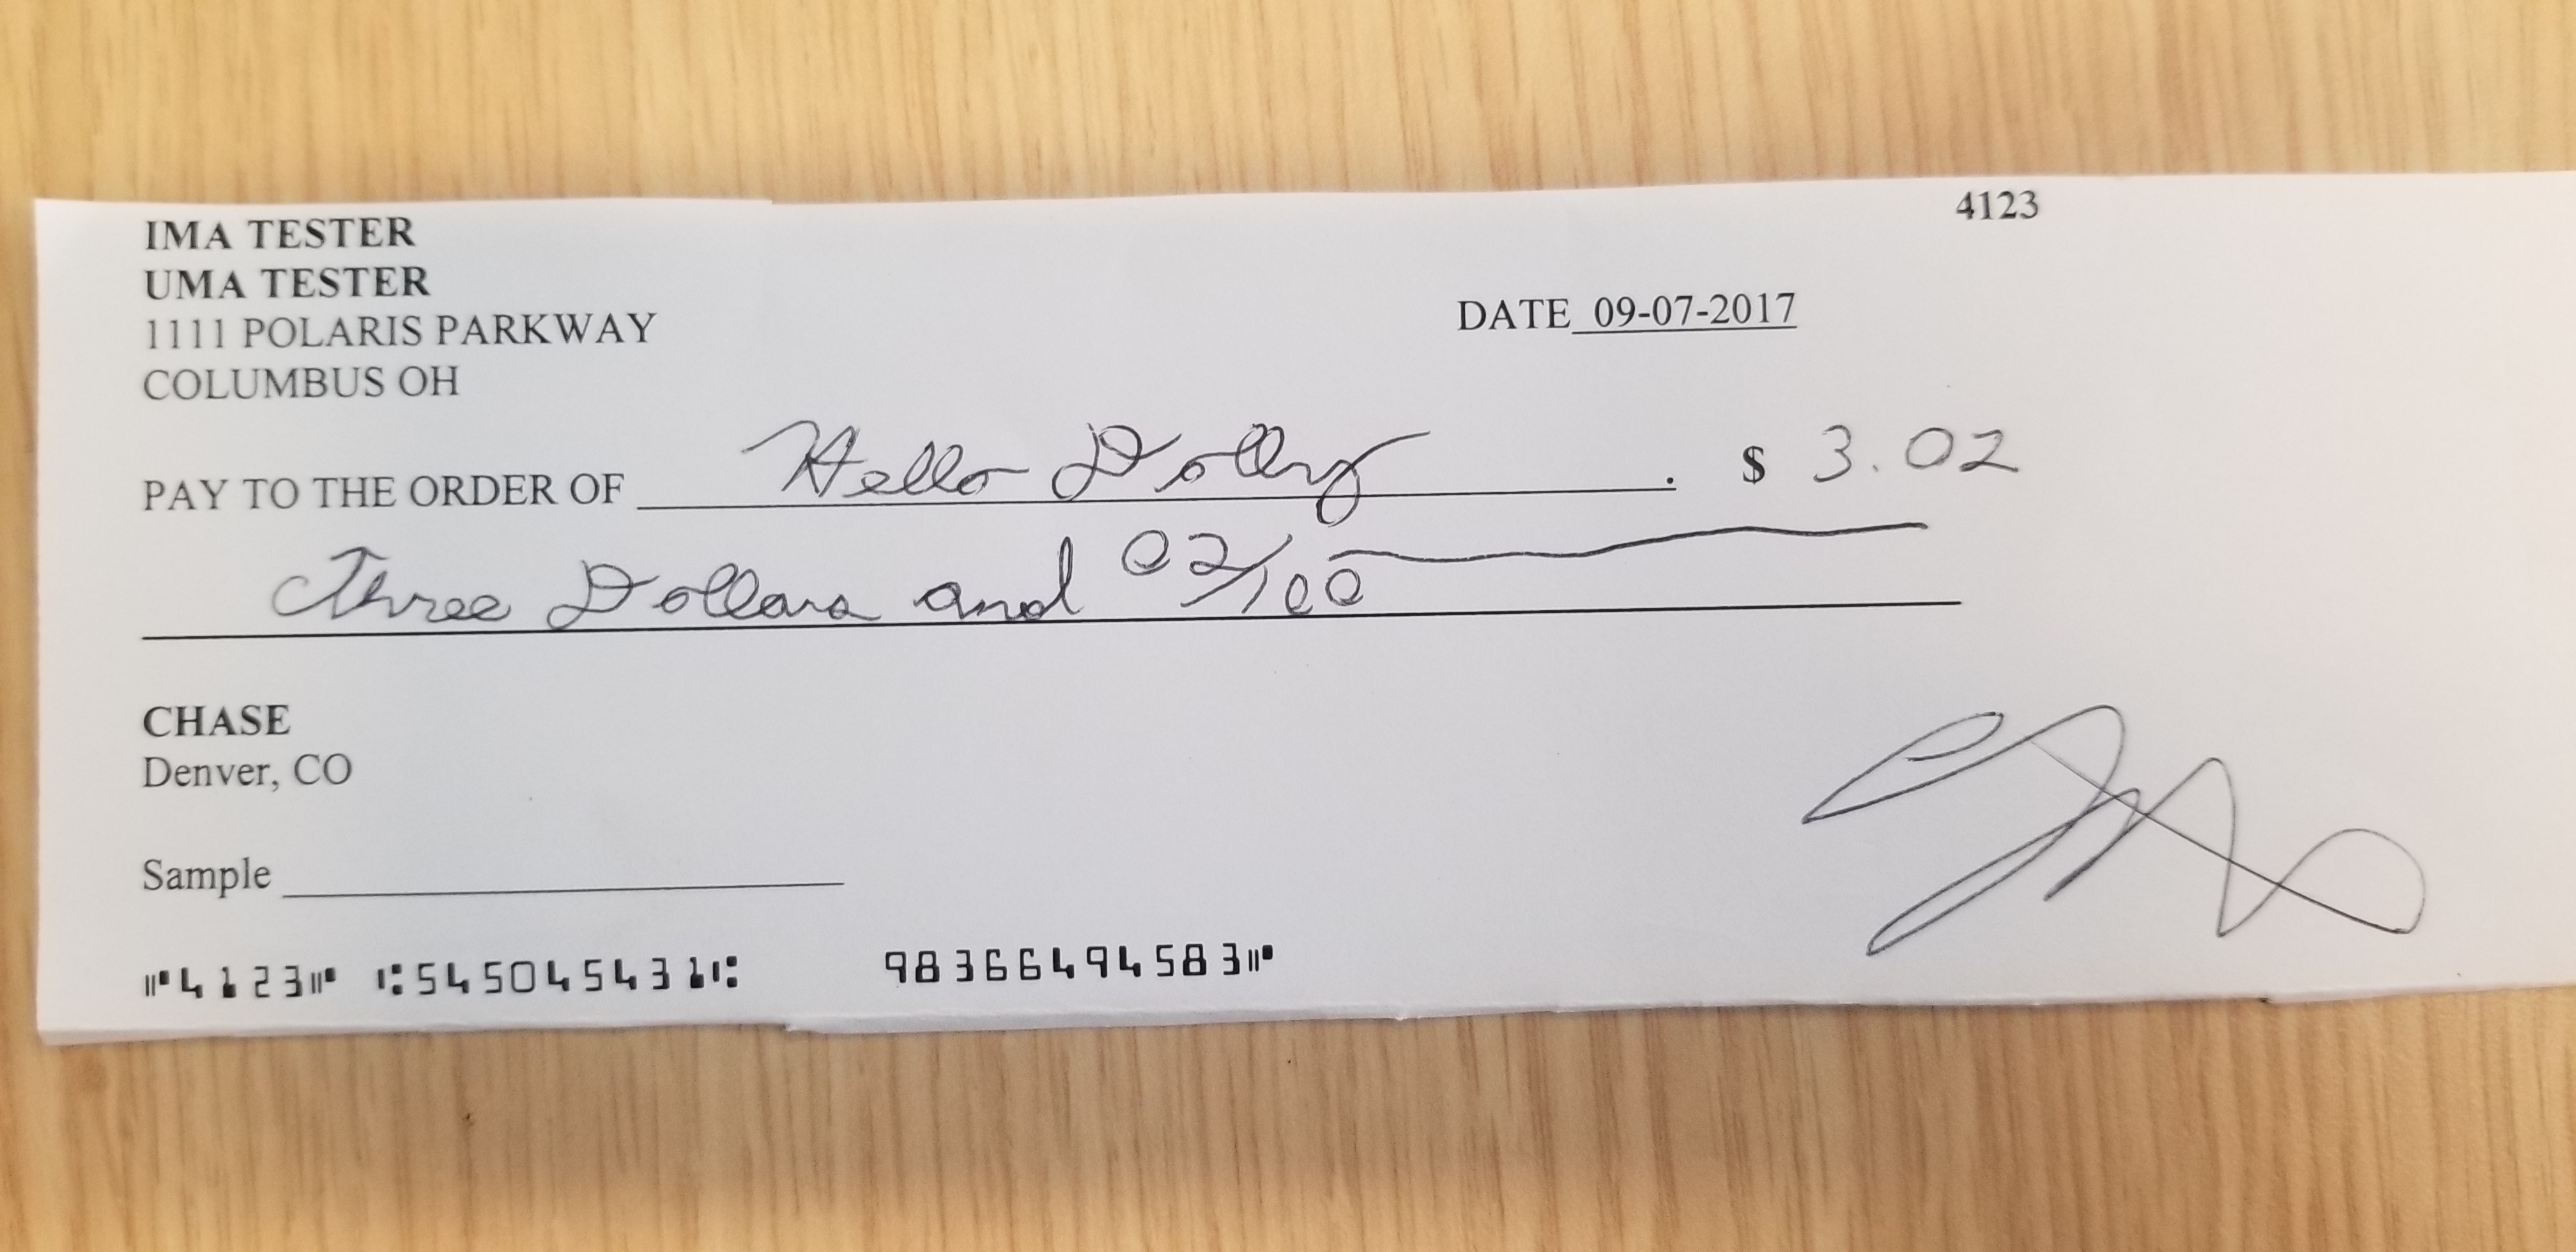 4123
IMA TESTER
UMA TESTER
1111 POLARIS PARKWAY
COLUMBUS OH
DATE 09-07-2017
PAY TO THE ORDER OF Hello Dolly . $ 3.02
Three Dollars and 02/100
CHASE
Denver, CO
Sample
⑈4123⑈ ⑆545045431⑆ 98366494583⑈